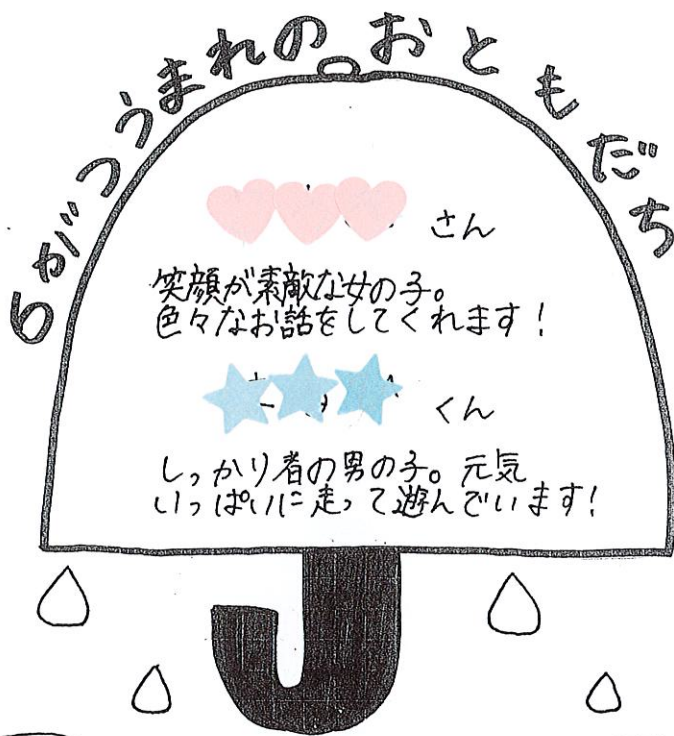 6がつうまれのおともだち
さん
笑顔が素敵な女の子。
色々なお話をしてくれます!
くん
しっかり者の男の子。元気
いっぱいに走って遊んでいます!